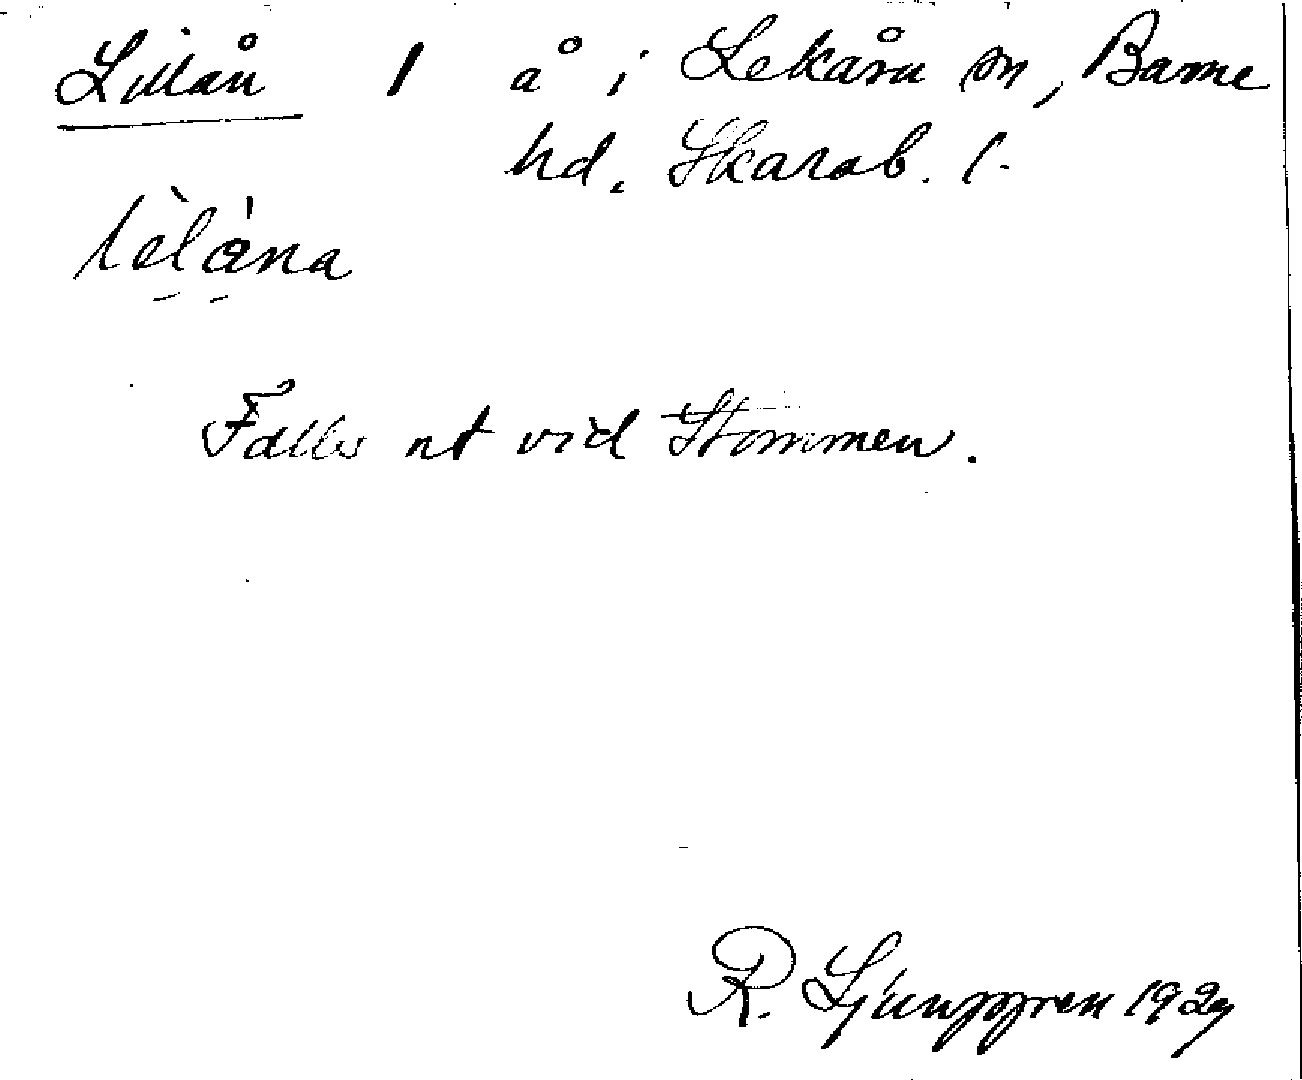 Lillån 1 å i Lekåsa sn, Barne
hd. Skarab. l.
lèlåna
Faller ut vid Stommen.
R. Ljunggren 1929